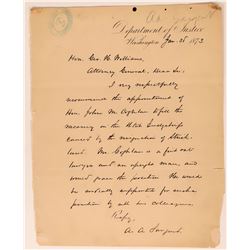 A. A. Sargent
Department of Justice
Washington Jan. 28 1873
Hon. Geo. H. Williams,
Attorney General, Dear Sir:
I very respectfully
recommend the appointment of
Hon. John M. Coghlan to fill the
vacancy on the Utah Judgeship
caused by the resignation of Strick-
land. Mr. Coghlan is a first rate
lawyer and an upright man, and
would grace the position. He would
be cordially supported for such
position by all his colleagues.
Respy,
A. A. Sargent